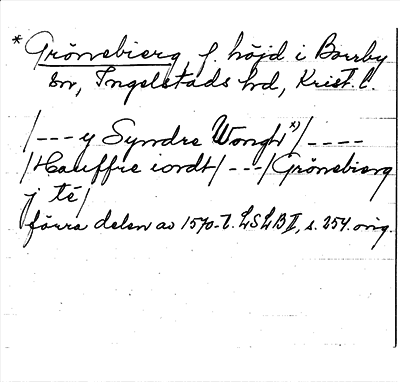 * Grönebierg f. höjd i Borrby
sn, Ingelstads hd, Krist. l.
/--- y Syndre Wongh *)/----
/Hauffre iordt/---/Grönebierg
j té/
förra delen av 1570-t. LSLB II, s. 254. orig.